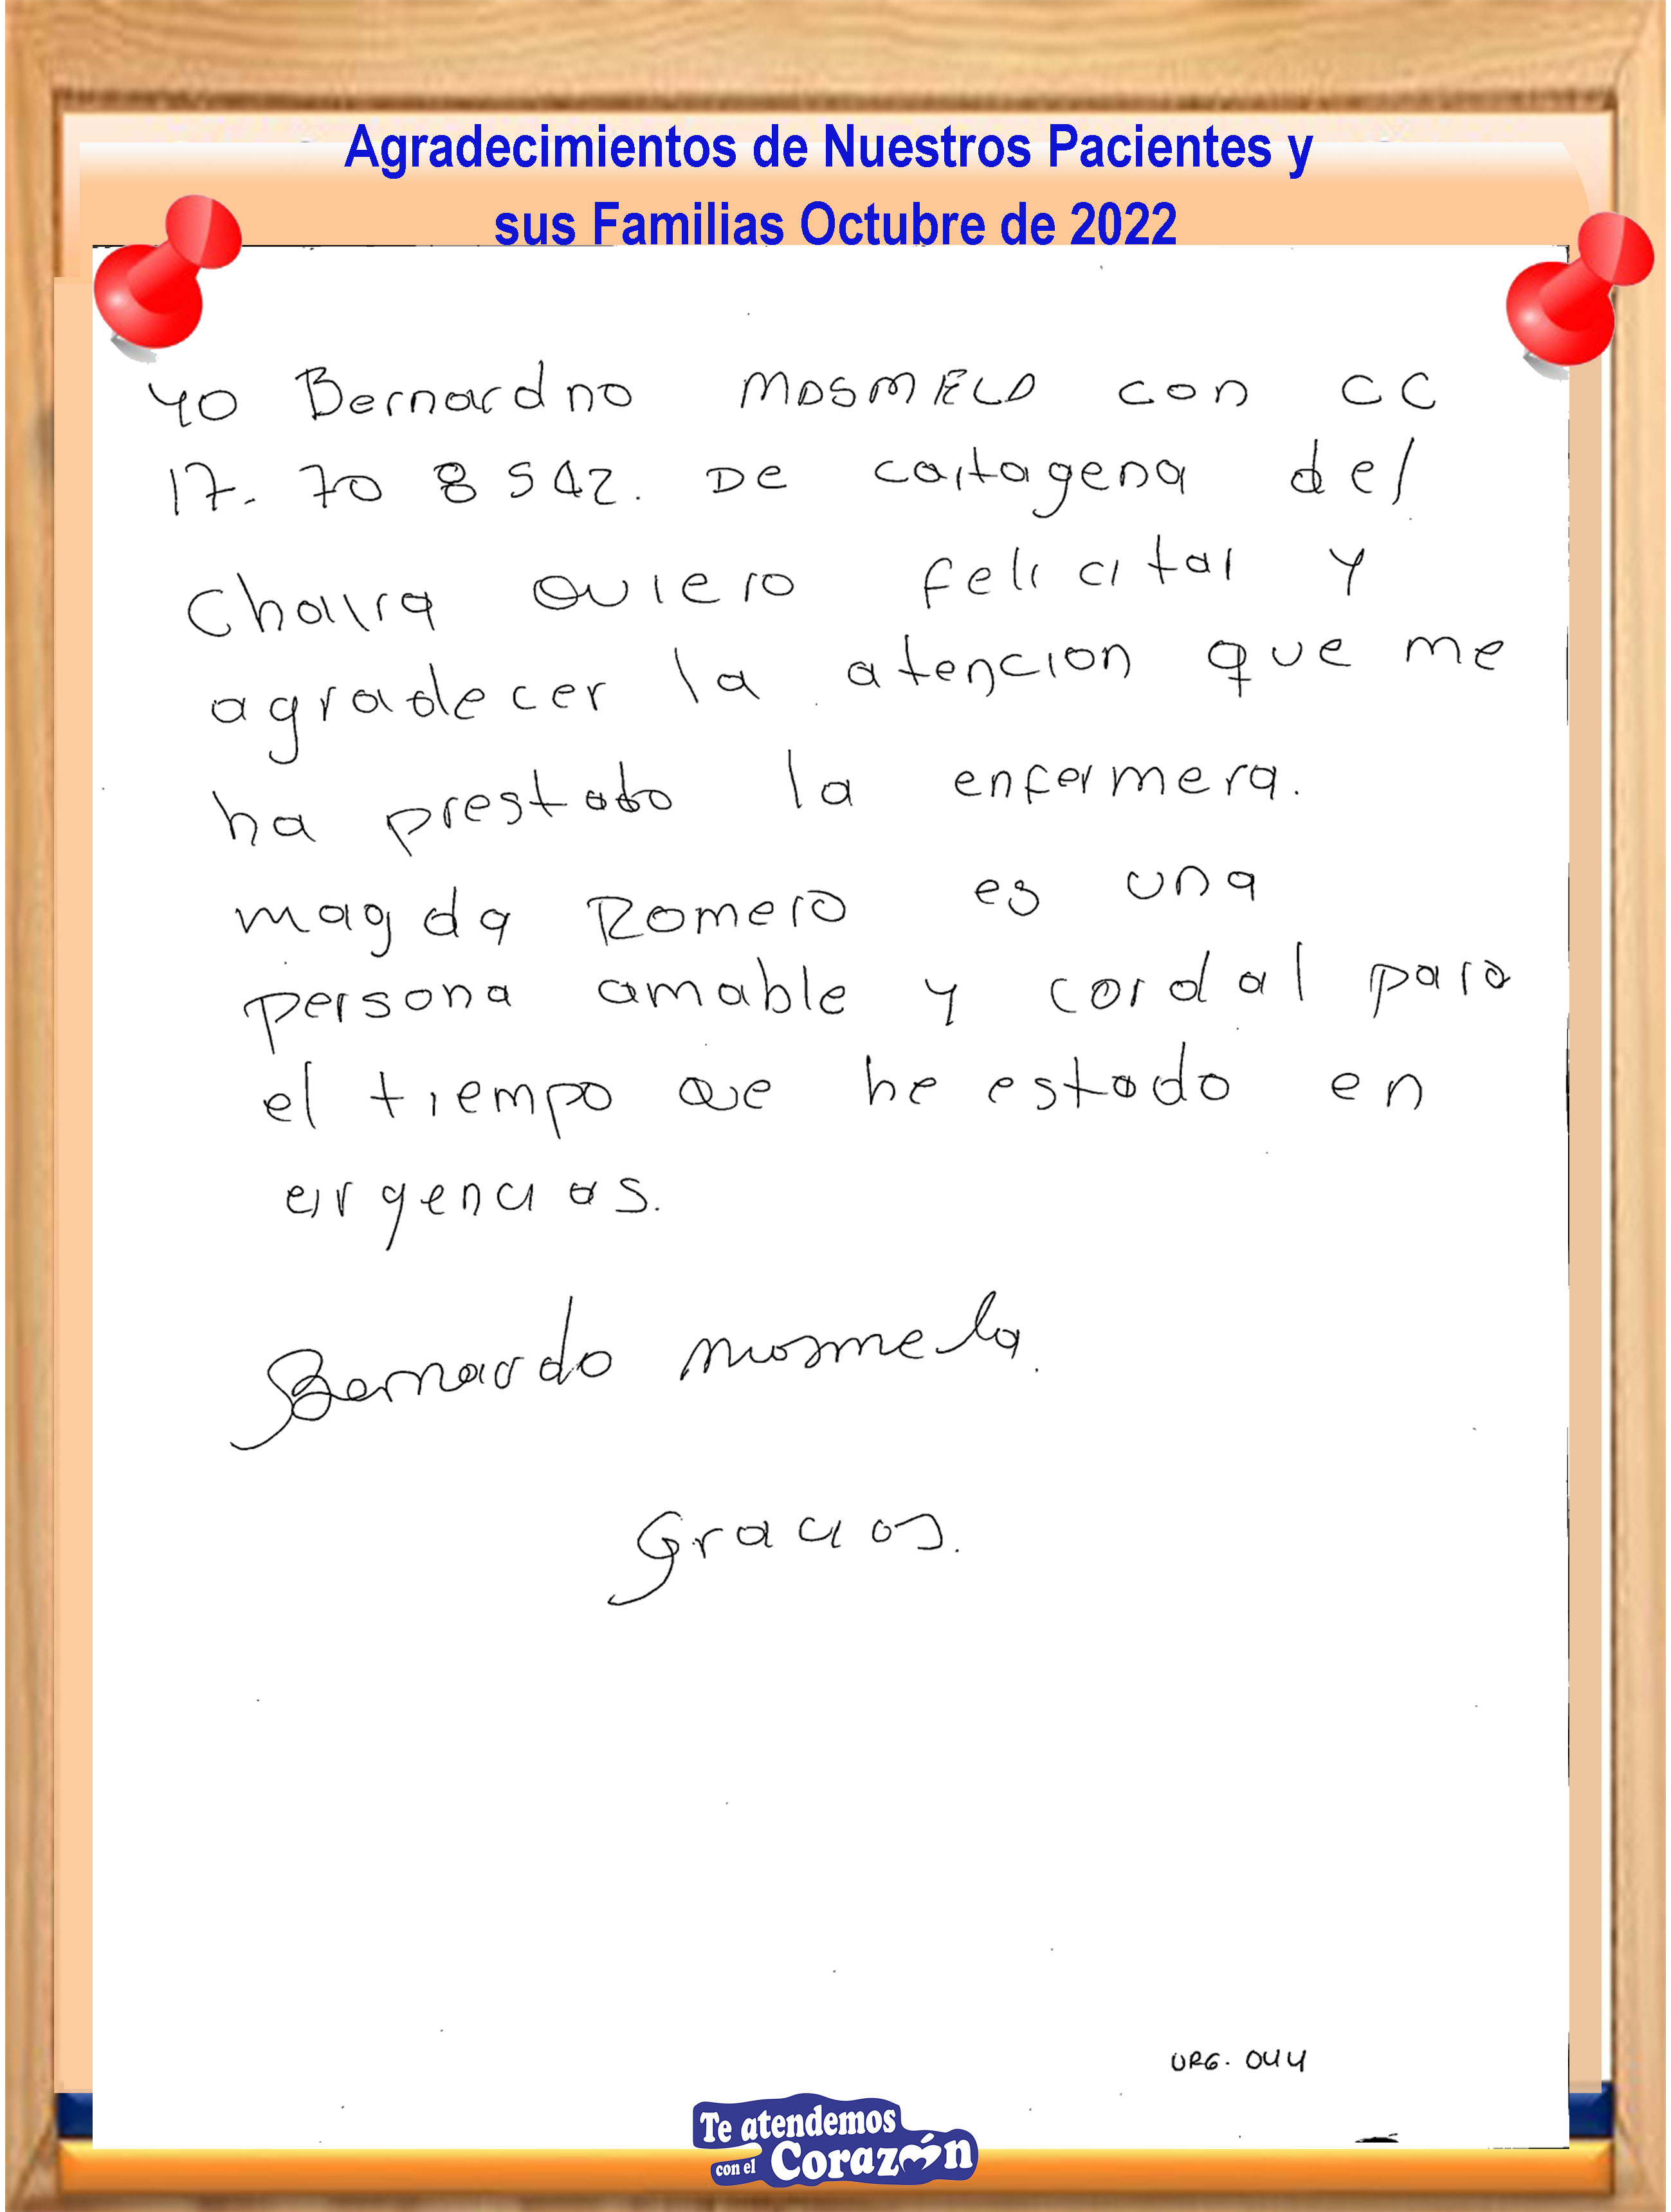 Agradecimientos de Nuestros Pacientes y
sus Familias Octubre de 2022
Yo Bernardno MOSMELO con CC
17.708542. De cartagena del
Chaira Quiero felicitar y
agradecer la atencion que me
ha prestado la enfermera.
magda Romero es una
persona amable y cordal para
el tiempo que he estado en
urgencias.
Bernardo mosmela.
Gracias.
URG. 044
Te atendemos
con el Corazón